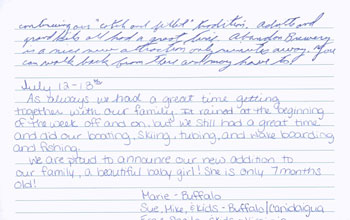 continuing our "catch and
grand kids all had a great time. Abandon Brewery
is a nice new attraction only minutes away. You
can walk back from there and many have to!
July 12-18th
As always we had a great time getting
together with our family. It rained at the beginning
of the week off and on, but we still had a great time
and did our boating, skiing, tubing, and wake boarding
and fishing.
We are proud to announce our new addition to
our family, a beautiful baby girl! She is only 7 months
old!
Marie - Buffalo
Sue, Mike, & kids - Buffalo/Canandaigua